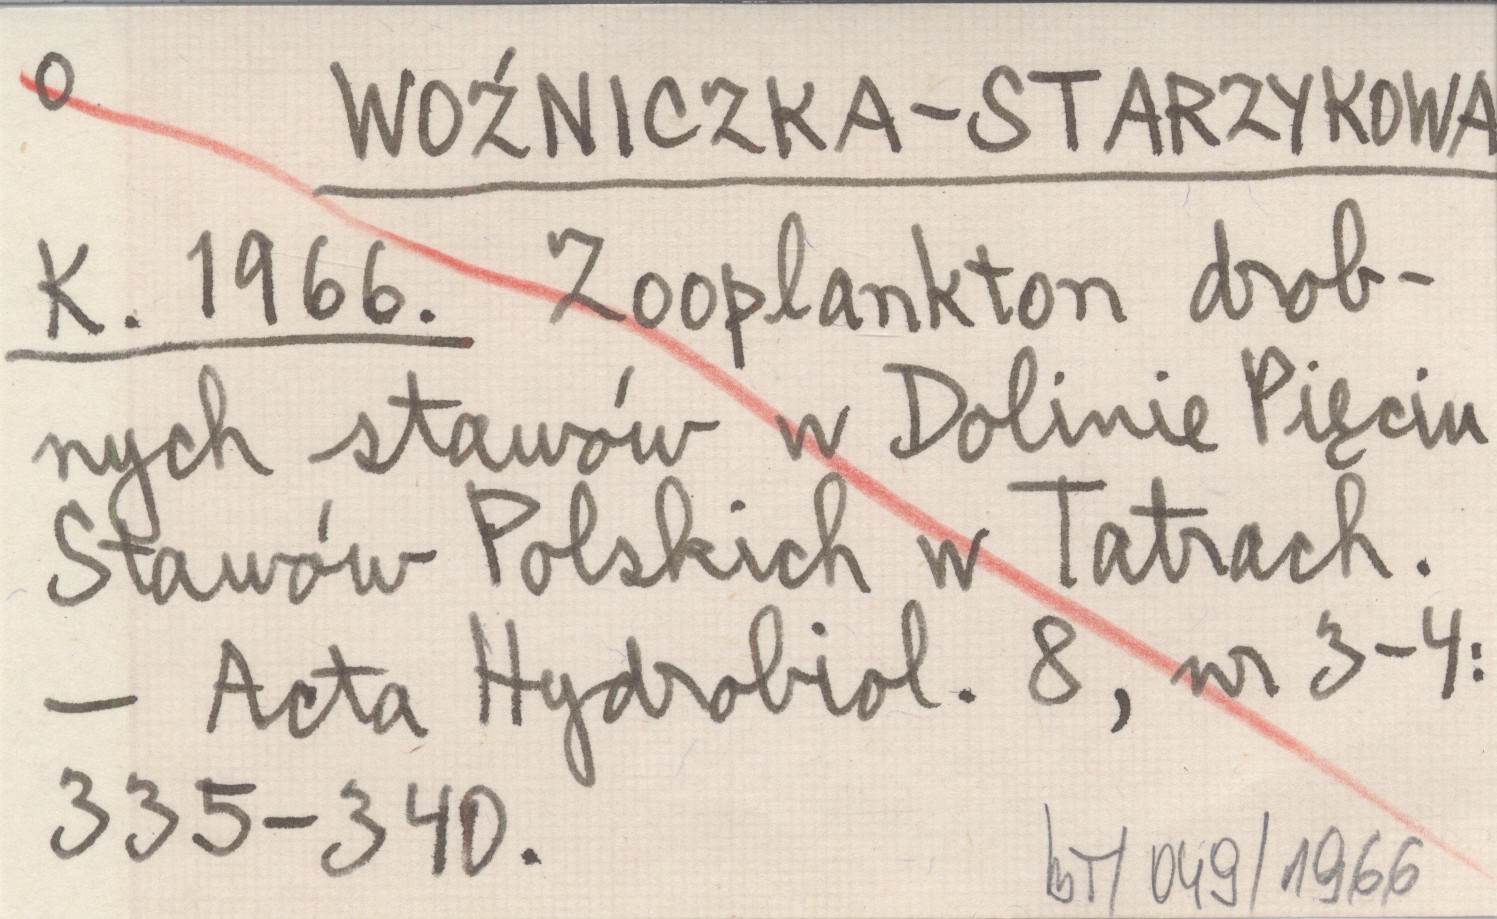 O WOŹNICZKA-STARZYKOWA
K. 1966. Zooplankton drob-
nych stawów w Dolinie Pięciu
Stawów Polskich w Tatrach.
— Acta Hydrobiol. 8, nr 3-4:
335-340.
bT/049/1966